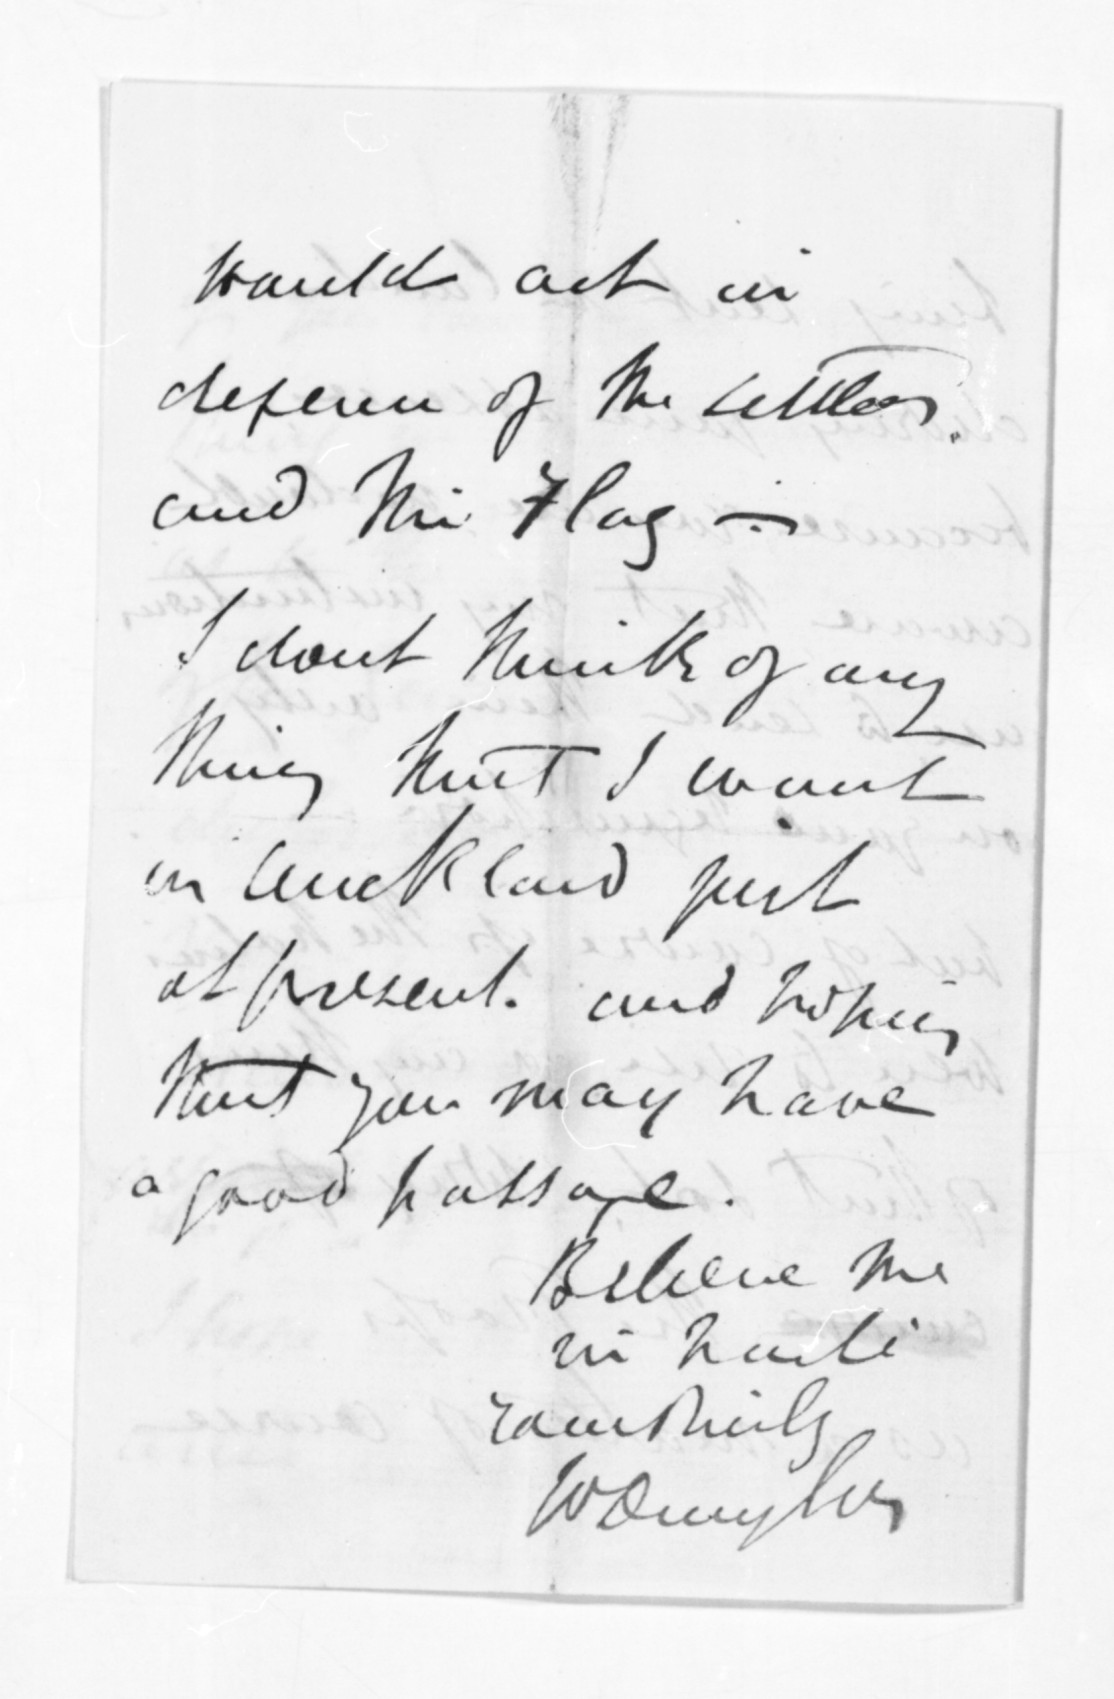 would act in
defence of the settlers
and the Flag —
I dont think of any
thing that I want
in Auckland just
at present. and hoping
that you may have
a good passage.
Believe me
in haste
yours truly